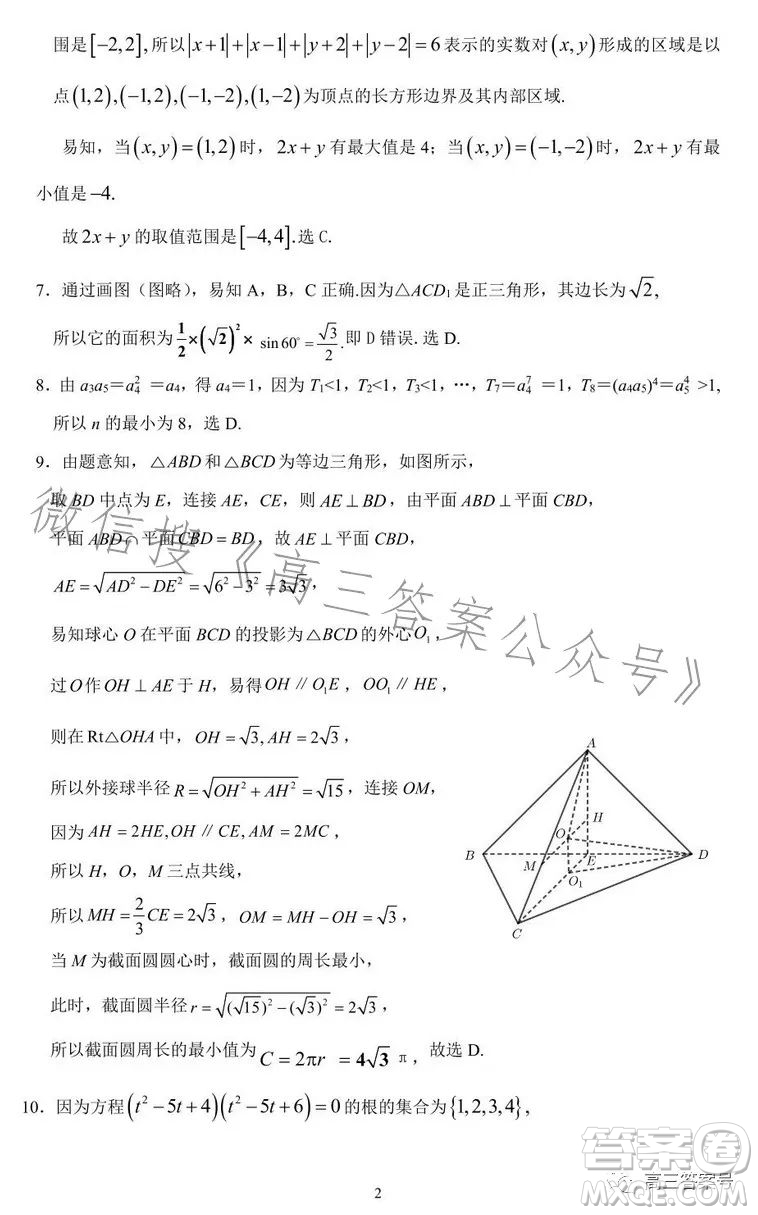 围是[−2,2],所以|x+1|+|x−1|+|y+2|+|y−2|=6表示的实数对(x,y)形成的区域是以
点(1,2),(−1,2),(−1,−2),(1,−2)为顶点的长方形边界及其内部区域.
易知，当(x,y)=(1,2)时，2x+y有最大值是4；当(x,y)=(−1,−2)时，2x+y有最
小值是−4.
故2x+y的取值范围是[−4,4].选C.
7．通过画图（图略），易知A，B，C正确.因为△ACD₁是正三角形，其边长为√2,
所以它的面积为1/2×(√2)²×sin60°=√3/2.即D错误.选D.
8．由a₃a₅＝a₄²＝a₄，得a₄＝1，因为T₁<1，T₂<1，T₃<1，…，T₇＝a₄⁷＝1，T₈＝(a₄a₅)⁴＝a₅⁴>1,
所以n的最小为8，选D.
9．由题意知，△ABD和△BCD为等边三角形，如图所示，
取BD中点为E，连接AE，CE，则AE⊥BD，由平面ABD⊥平面CBD，
平面ABD∩平面CBD=BD，故AE⊥平面CBD，
AE=√(AD²−DE²)=√(6²−3²)=3√3，
易知球心O在平面BCD的投影为△BCD的外心O₁，
过O作OH⊥AE于H，易得OH∥O₁E，OO₁∥HE，
则在Rt△OHA中，OH=√3,AH=2√3，
所以外接球半径R=√(OH²+AH²)=√15，连接OM，
因为AH=2HE,OH∥CE,AM=2MC，
所以H，O，M三点共线，
所以MH=2/3CE=2√3，OM=MH−OH=√3，
当M为截面圆圆心时，截面圆的周长最小，
此时，截面圆半径r=√((√15)²−(√3)²)=2√3，
所以截面圆周长的最小值为C=2πr=4√3π，故选D.
A
H
O
B
M
E
D
O₁
C
10．因为方程(t²−5t+4)(t²−5t+6)=0的根的集合为{1,2,3,4}，
2
微信搜《高三答案公众号》
答案圈
高三答案号
MXQE.COM